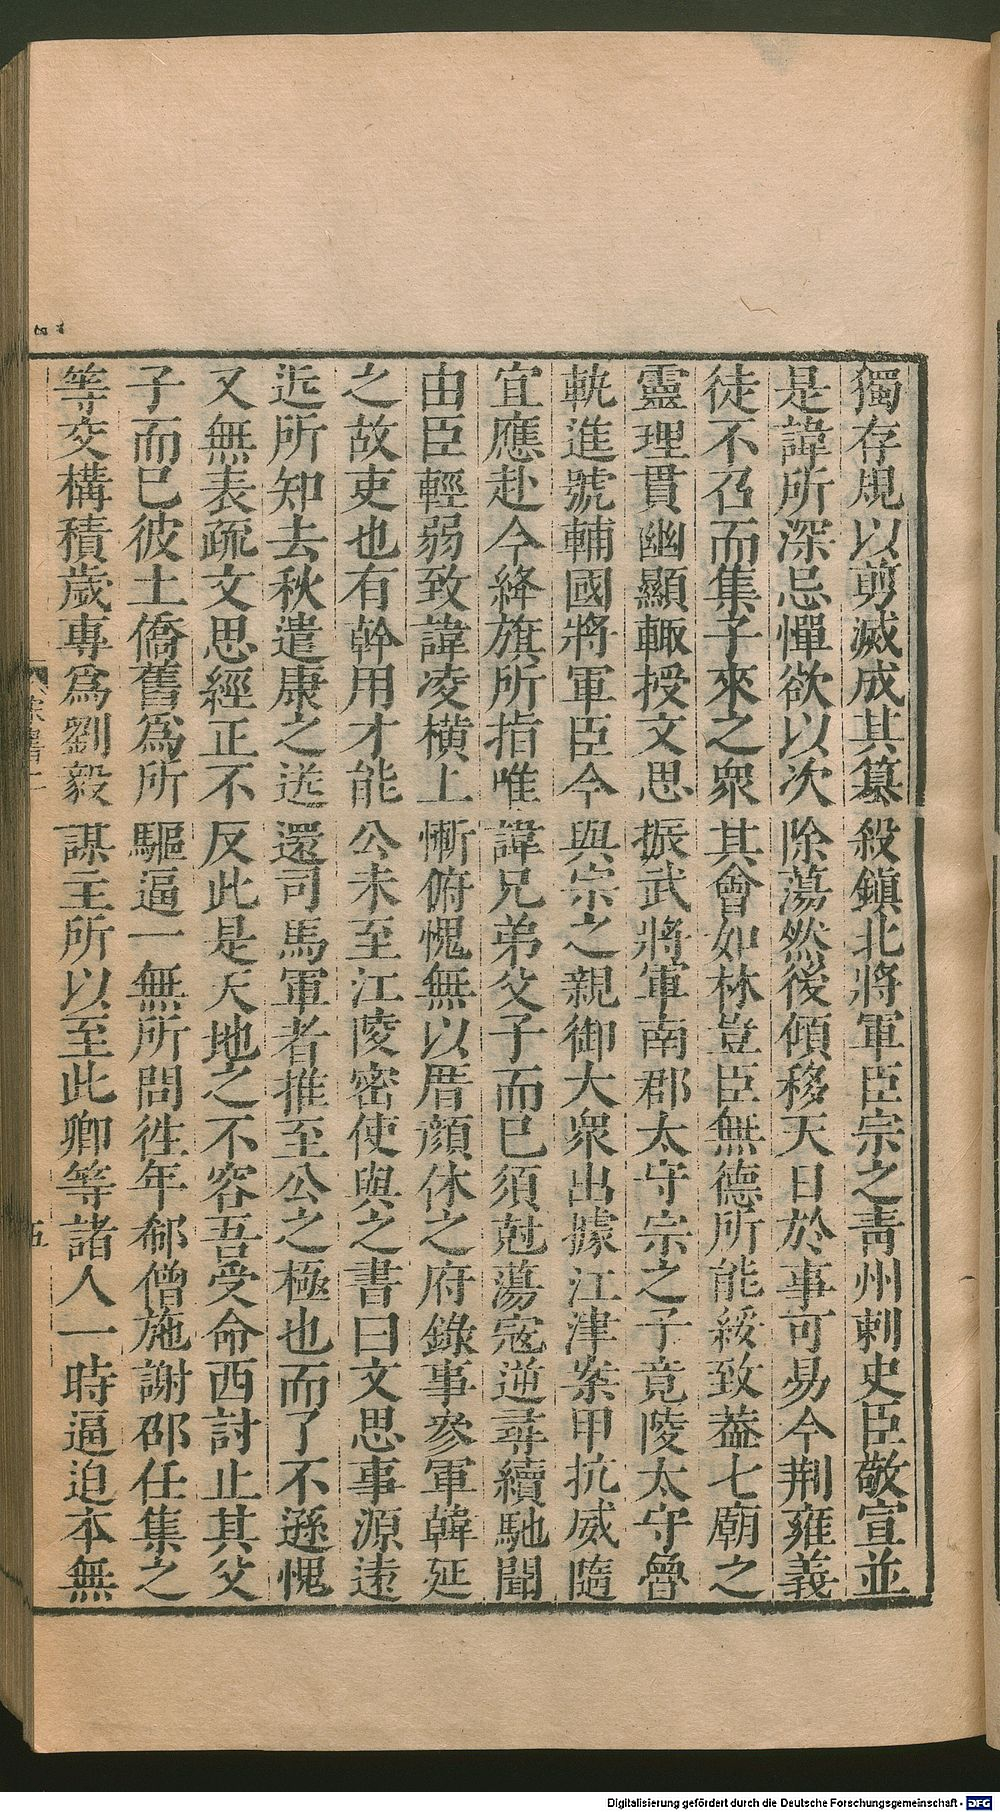 獨存規以剪滅成其篡殺鎮北將軍臣宗之青州刺史臣敬宣並
是諱所深忌憚欲以次除蕩然後傾移天日於事可易今荆雍義
徒不召而集子來之衆其會如林豈臣無德所能綏致葢七廟之
靈理貫幽顯輙授文思振武將軍南郡太守宗之子竟陵太守魯
軌進號輔國將軍臣今與宗之親御大衆出據江津案甲抗威隨
宜應赴今絳旗所指唯諱兄弟父子而已須尅蕩寇逆尋續馳聞
由臣輕弱致諱凌橫上慚俯愧無以厝顔休之府錄事叅軍韓延
之故吏也有幹用才能公未至江陵密使與之書曰文思事源遠
近所知去秋遣康之送還司馬軍者推至公之極也而了不遜愧
又無表疏文思經正不反此是天地之不容吾受命西討止其父
子而已彼土僑舊爲所驅逼一無所問徃年郗僧施謝邵任集之
等交構積歲專爲劉毅謀主所以至此卿等諸人一時逼迫本無
五
Digitalisierung gefördert durch die Deutsche Forschungsgemeinschaft - DFG